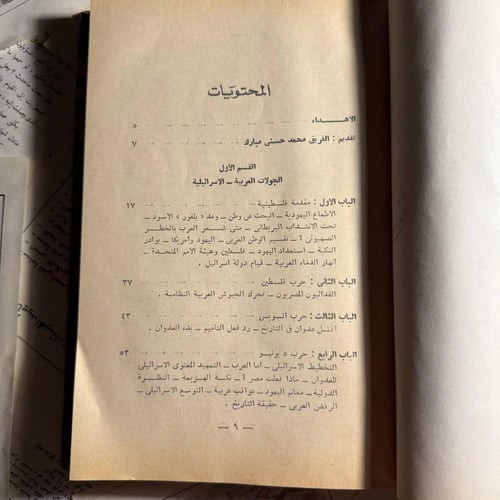 المحتويات
الاهـــداء ٥
تقديم : الفريق محمد حسنى مبارك ٧
القسم الأول
الجولات العربية ــ الاسرائيلية
الباب الأول : مقدمة فلسطينية ١٧
الأطماع اليهودية ــ البحث عن وطن ــ وعد « بلفور » الأسود ــ
تحت الانتداب البريطانى ــ متى شعر العرب بالخطر
الصهيونى ؟ ــ تقسيم الوطن العربى ــ اليهود وأمريكا ــ بوادر
النكبة ــ استعداد اليهود ــ فلسطين وهيئة الأمم المتحدة ــ
انهار الدماء العربية ــ قيام دولة اسرائيل .
الباب الثانى : حرب فلسطين ٣٧
الفدائيون المصريون ــ تحرك الجيوش العربية النظامية .
الباب الثالث : حرب السويس ٤٣
أفشل عدوان فى التاريخ ــ رد فعل التأميم ــ بدء العدوان .
الباب الرابع : حرب ٥ يونيو ٥٣
التخطيط الاسرائيلى ــ أما العرب ــ التمهيد المعنوى الاسرائيلى
للعدوان ــ ماذا فعلت مصر ؟ ــ نكسة الهزيمة ــ النظرة
الدولية ــ مغانم اليهود ــ عواقب عربية ــ التوسع الاسرائيلى ــ
الرفض العربى ــ حقيقة التاريخ .
ــ ٩ ــ